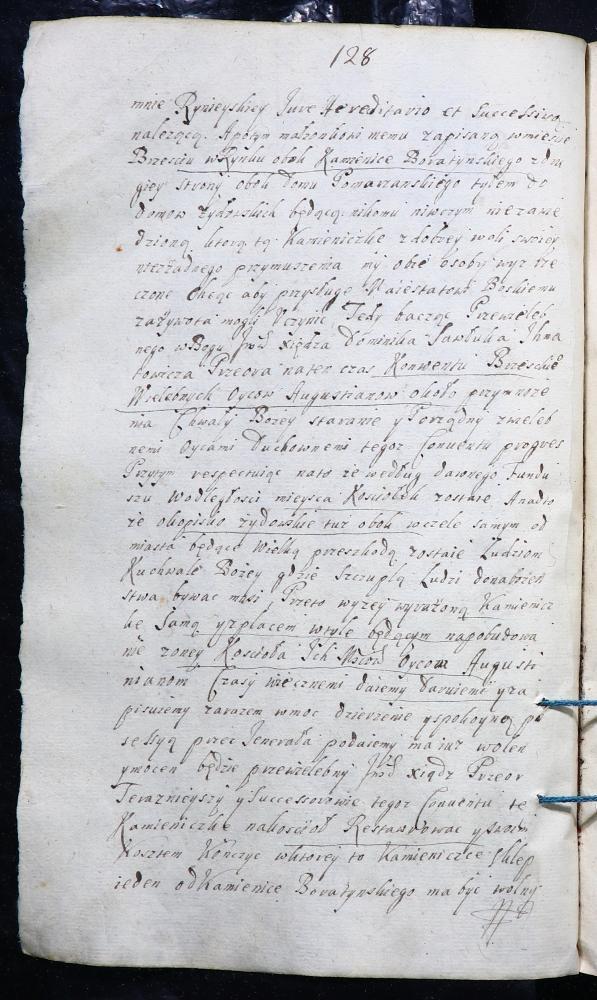 128
mnie Rynieyskiey Jure Hereditario et Successivo
należącą. Apotym małżonkowi memu zapisaną wmieście
Brześciu wRynku obok Kamienice Boratynskiego zdru
giey strony obok domu Pomarzanskiego tyłem do
domow żydowskich będącą nikomu niwczym niezawie
dzioną ktorą tę Kamieniczkę zdobrey woli swoiey
nieżadnego przymuszenia my obie osoby wyz rze
czone Chcąc aby przysługę Maiestatowi Boskiemu
zażywota mogli Uczynic, Tedy bacząc Przewieleb
nego wBogu Jmś xiędza Dominika Sawluka Ihna
towicza Przeora naten czas Konwentu Brzeskie
Wielebnych Oycow Augustianow około przymnoże
nia Chwały Bozey staranie y Porządny zwieleb
nemi Oycami Duchownemi tegoz Conventu progres
Przytym respectuiąc nato że według dawnego Fundu
szu Wodległosci mieysca Kosciołek zostaie Anadto
że okopisko żydowskie tuz obok wczele samym od
miasta będące wielką przeszkodą zostaie Ludziom
Kuchwale Bożey gdzie szczupłą Ludzi donabożeń
stwa bywac musi, Przeto wyzey wyrażoną Kamienicz
kę Samą yzplacem wtyle będącym napobudowa
nie Koscioła Ich Mciow Oycom Augusti
nianom Czasy wiecznemi daiemy Daruiemy yza
pisuiemy zarazem wmoc dzierżenie yspokoyną po
sessyą przez Jenerała podaiemy maiuz wolen
ymocen będzie przewielebny Jmś xiądz Przeor
Teraznieyszy ySuccessorowie tegoz Conventu tę
Kamieniczkę nakoscioł Restawrowac yswoim
Kosztem Kończyc wktorey to Kamieniczce Sklep
ieden odKamienice Boratynskiego ma być wolny